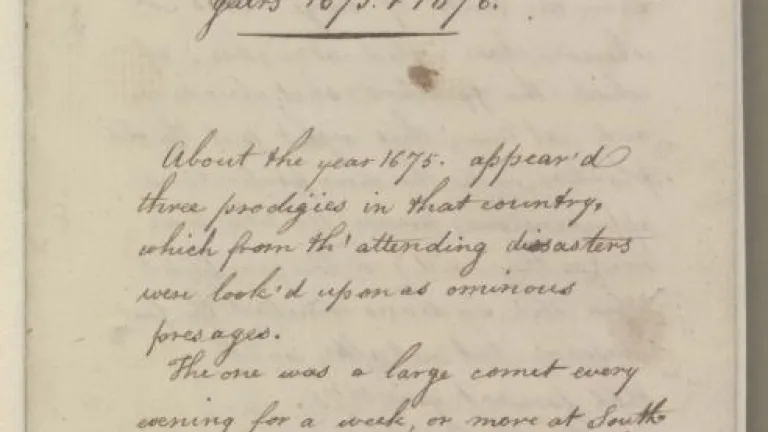 years 1675. & 1676.
About the year 1675. appear'd
three prodigies in that country,
which from th' attending disasters
were look'd upon as ominous
presages.
The one was a large comet every
evening for a week, or more at South